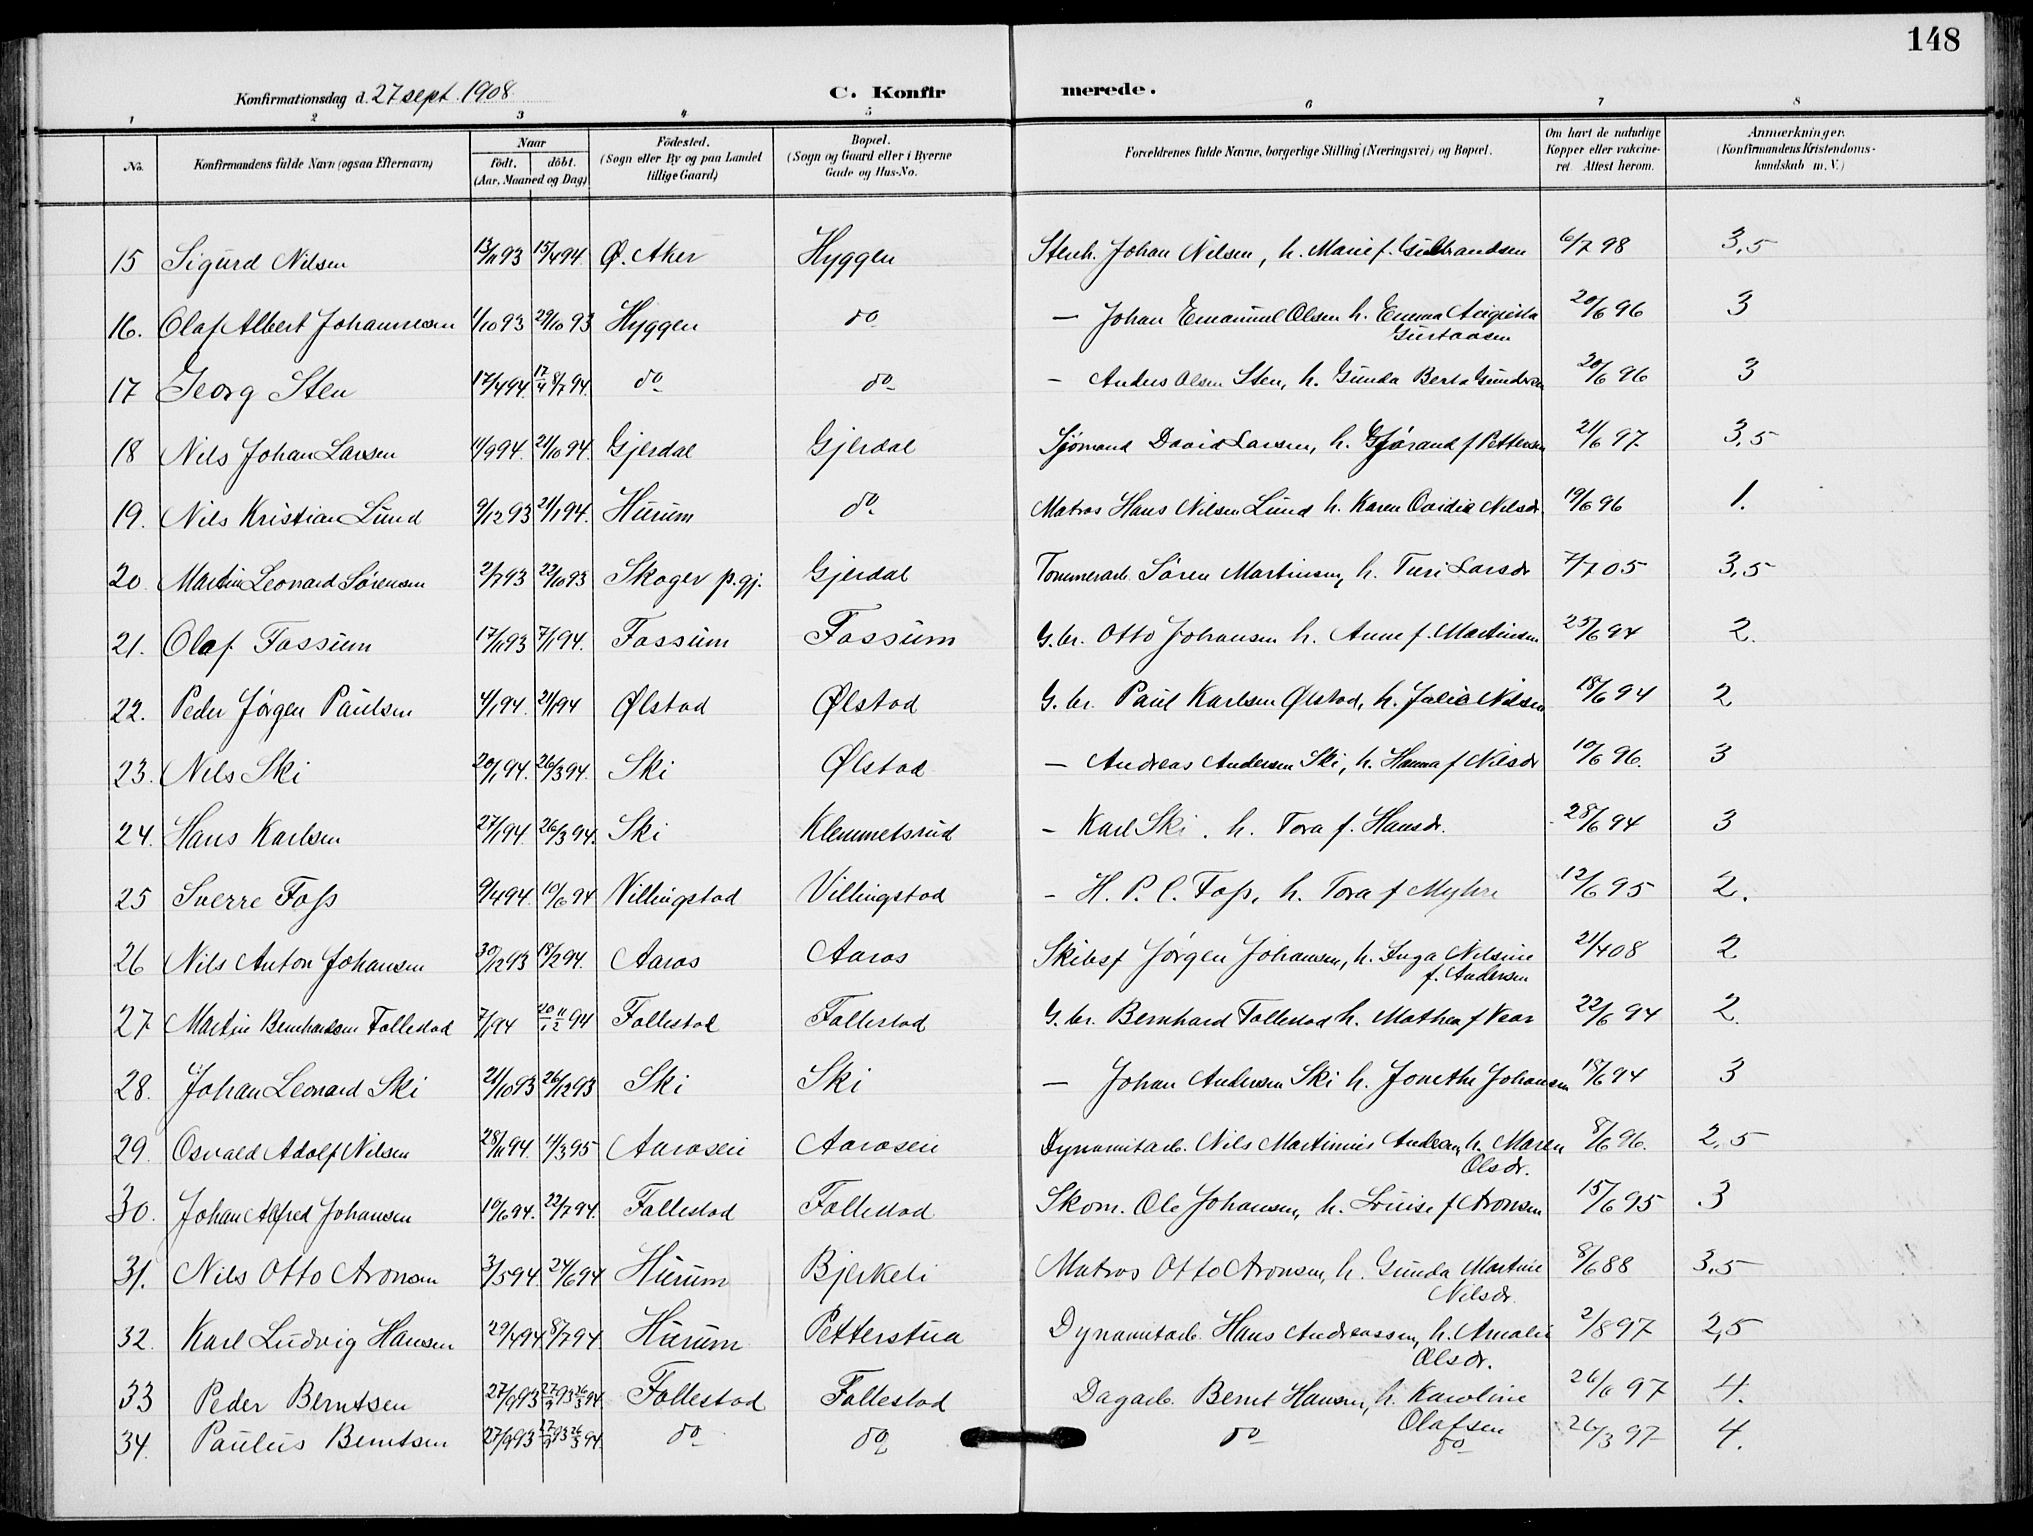 148
Konfirmationsdag d. 27 sept. 1908
C. Konfirmerede.
1 2 3 4 5 6 7 8
No. Konfirmandens fulde Navn (ogsaa Efternavn) Naar födt. döbt. (Aar, Maaned og Dag) Födested. (Sogn eller By og paa Landet tillige Gaard) Bopæl. (Sogn og Gaard eller i Byerne Gade og Hus-No. Forældrenes fulde Navne, borgerlige Stilling (Næringsvei) og Bopæl. Om havt de naturlige Kopper eller vakcineret. Attest herom. Anmærkninger. (Konfirmandens Kristendomskundskab m. V.)
15 Sigurd Nilsen 13/11 93 15/4 94. Ø. Aker Hyggen Stenh. Johan Nilsen, h. Marie f. Gulbrandsen 6/7 98 3,5
16. Olaf Albert Johannesen 1/10 93 29/10 93 Hyggen do — Johan Emanuel Olsen h. Emma Augusta 20/6 96 3
Gustavsen
17 Georg Sten 17/4 94. 17/4 8/7 94. do do - Anders Olsen Sten, h. Gunda Berta Gundersen 20/6 96 3
18 Nils Johan Larsen 11/9 94. 21/10 94. Gjerdal Gjerdal Sjömand David Larsen, h. Gjørand f Pettersen 21/6 97 3,5
19. Nils Kristian Lund 9/12 93 21/1 94. Hurum do Matros Hans Nilsen Lund h. Karen Ovidia Nilsdr. 19/6 96 1.
20. Martin Leonard Sørensen 2/7 93 22/10 93 Skoger p.gj. Gjerdal Tommerarb. Sören Martinsen, h. Turi Larsdr 7/7 05 3,5
21. Olaf Fossum 17/11 93 7/1 94. Fossum Fossum G.br. Otto Johansen h. Anne f. Martinsen 25/6 94 2.
22. Peder Jørgen Paulsen 4/1 94. 21/1 94 Ølstad Ølstad G.br. Paul Karlsen Ølstad, h. Julie Nilsen 18/6 94 2
23. Nils Ski 20/1 94. 26/3 94. Ski Ølstad — Andreas Andersen Ski, h. Hanna f Nilsdr 10/6 96. 3
24. Hans Karlsen 27/1 94. 26/3 94. Ski Klemmetsrud - Karl Ski. h. Tora f. Hansdr. 28/6 94 3
25 Sverre Foss 9/4 94. 10/6 94 Villingstad Villingstad - H. P. C. Foss, h. Tora f Myhre 12/6 95 2.
26 Nils Anton Johansen 30/12 93 18/2 94. Aaros Aaros Skibsf Jørgen Johansen, h. Inga Nilsine 21/4 08 2
f. Andersen
27 Martin Bernhardsen Follestad 7/1 94 20/1 11/2 94 Follestad Follestad G.br. Bernhard Follestad h. Mathea f Vear 22/6 94 2.
28. Johan Leonard Ski 21/10 93 26/12 93 Ski Ski — Johan Andersen Ski h. Jonethe Johansen 18/6 94 3
29. Osvald Adolf Nilsen 28/11 94. 4/3 95 Aaroseie Aaroseie Dynamitarb. Nils Martinius Andersen, h. Maren 8/6 96. 2,5
Olsdr.
30. Johan Alfred Johansen 19/6 94. 22/7 94. Follestad Follestad Skom. Ole Johansen, h. Louise f Aronsen 15/6 95 3
31. Nils Otto Aronsen 3/5 94. 24/6 94. Hurum Bjerkeli Matros Otto Aronsen, h. Gunda Martine 8/6 88 3,5
Nilsdr.
32. Karl Ludvig Hansen 29/4 94. 8/7 94 Hurum Petterstua Dynamitarb. Hans Andreassen, h. Amalie 2/8 97 2,5
Olsdr.
33 Peder Berntsen 27/9 93 27/9 93 26/3 94 Follestad Follestad Dagarb. Bernt Hansen, h. Karoline 26/6 97 4.
Olafsen
34. Paulus Berntsen 27/9 93 27/9 93 26/3 94. do do do do 26/3 97 4.